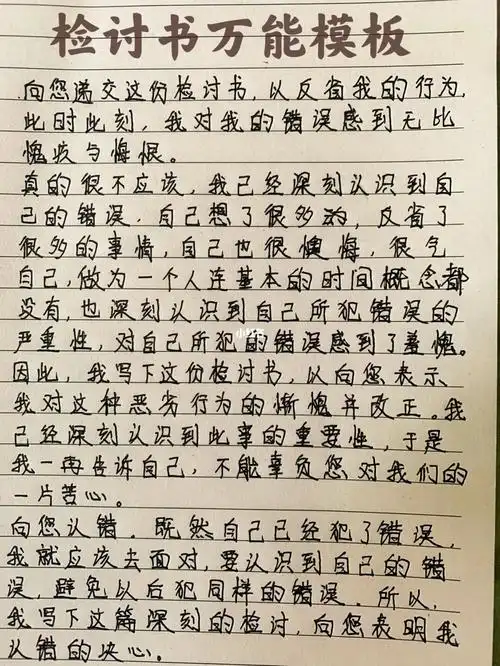 检讨书万能模板
向您递交这份检讨书，以反省我的行为，
此时此刻，我对我的错误感到无比
愧疚与悔恨。
真的很不应该，我已经深刻认识到自
己的错误，自己想了很多的，反省了
很多的事情，自己也很懊悔，很气
自己，做为一个人连基本的时间概念都
没有，也深刻认识到自己所犯错误的
严重性，对自己所犯的错误感到了羞愧。
因此，我写下这份检讨书，以向您表示
我对这种恶劣行为的惭愧并改正。我
已经深刻认识到此事的重要性，于是
我一再告诉自己，不能辜负您对我们的
一片苦心。
向您认错。既然自己已经犯了错误，
我就应该去面对，要认识到自己的错
误，避免以后犯同样的错误。所以，
我写下这篇深刻的检讨，向您表明我
认错的决心。
小红书